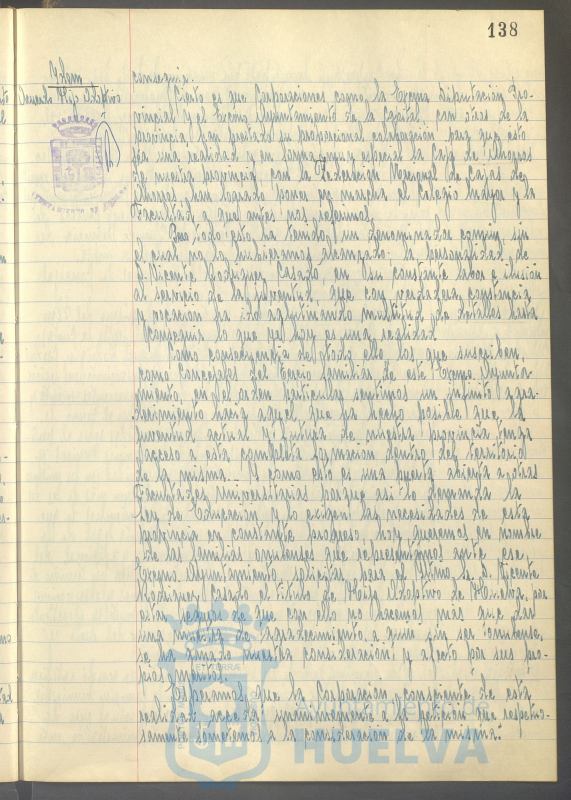 138
Idem
Acuerdo Hijo Adoptivo
conseguir.
Cierto es que Corporaciones como, la Excma Diputación Pro-
vincial y el Excmo Ayuntamiento de la Capital, con otras de la
provincia han prestado su proporcional colaboración para que esto
sea una realidad y en forma muy especial la Caja de Ahorros
de nuestra provincia, con la Federación Nacional de Cajas de
Ahorros han logrado poner en marcha el Colegio Mayor y la
Facultad a que antes nos referimos.
Pero todo esto, ha tenido, un denominador común, sin
el cual no lo hubieramos alcanzado: la personalidad de
D. Vicente Rodriguez Casado, en su constante labor e ilusión
al servicio de la juventud, que con verdadera constancia
y vocación ha ido aglutinando multitud de detalles hasta
conseguir lo que hoy es una realidad.
Como consecuencia de todo ello, los que suscriben,
como Concejales del tercio familiar de este Excmo. Ayunta-
miento, en el orden particular sentimos un infinito agra-
decimiento hacia aquel que ha hecho posible que la
juventud actual y futura de nuestra provincia tenga
acceso a esta completa formación dentro del territorio
de la misma. Y como esto es una puerta abierta a otras
Facultades Universitarias porque así lo demanda la
Ley de Educación y lo exigen las necesidades de esta
provincia en constante progreso, hoy queremos en nombre
de las familias onubenses que representamos ante ese
Excmo. Ayuntamiento, solicitar para el Iltmo. Sr. D. Vicente
Rodriguez Casado el titulo de Hijo Adoptivo de Huelva, por
estar seguros de que con ello no hacemos más que dar
una muestra de agradecimiento a quien sin ser onubense,
se ha ganado nuestra consideración y afecto por sus pro-
pios méritos.
Esperamos que la Corporación consciente de esta
realidad acceda unánimemente a la petición que respetuo-
samente sometemos a la consideración de la misma."
Ayuntamiento de
HUELVA